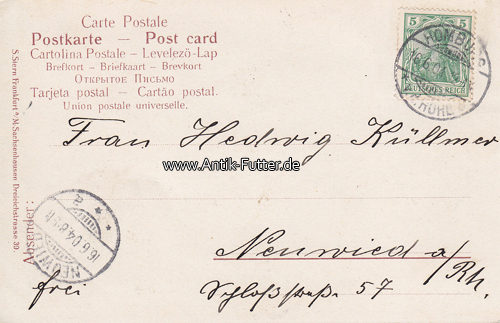 Carte Postale
Postkarte — Post card
Cartolina Postale – Levelező-Lap
Brefkort – Briefkaart – Brevkort
Открытое Письмо
Tarjeta postal – Cartão postal.
Union postale universelle.
S. Stern Frankfurt a/M. Sachsenhausen Dreieichstrasse 39.
5 5
DEUTSCHES REICH
HOMBURG
HÖHE
Frau Hedwig Küllmer
www.Antik-Futter.de
Absender:
NEUWIED
16.6.04
Neuwied a/
Rh.
frei
Schloßstraße 57